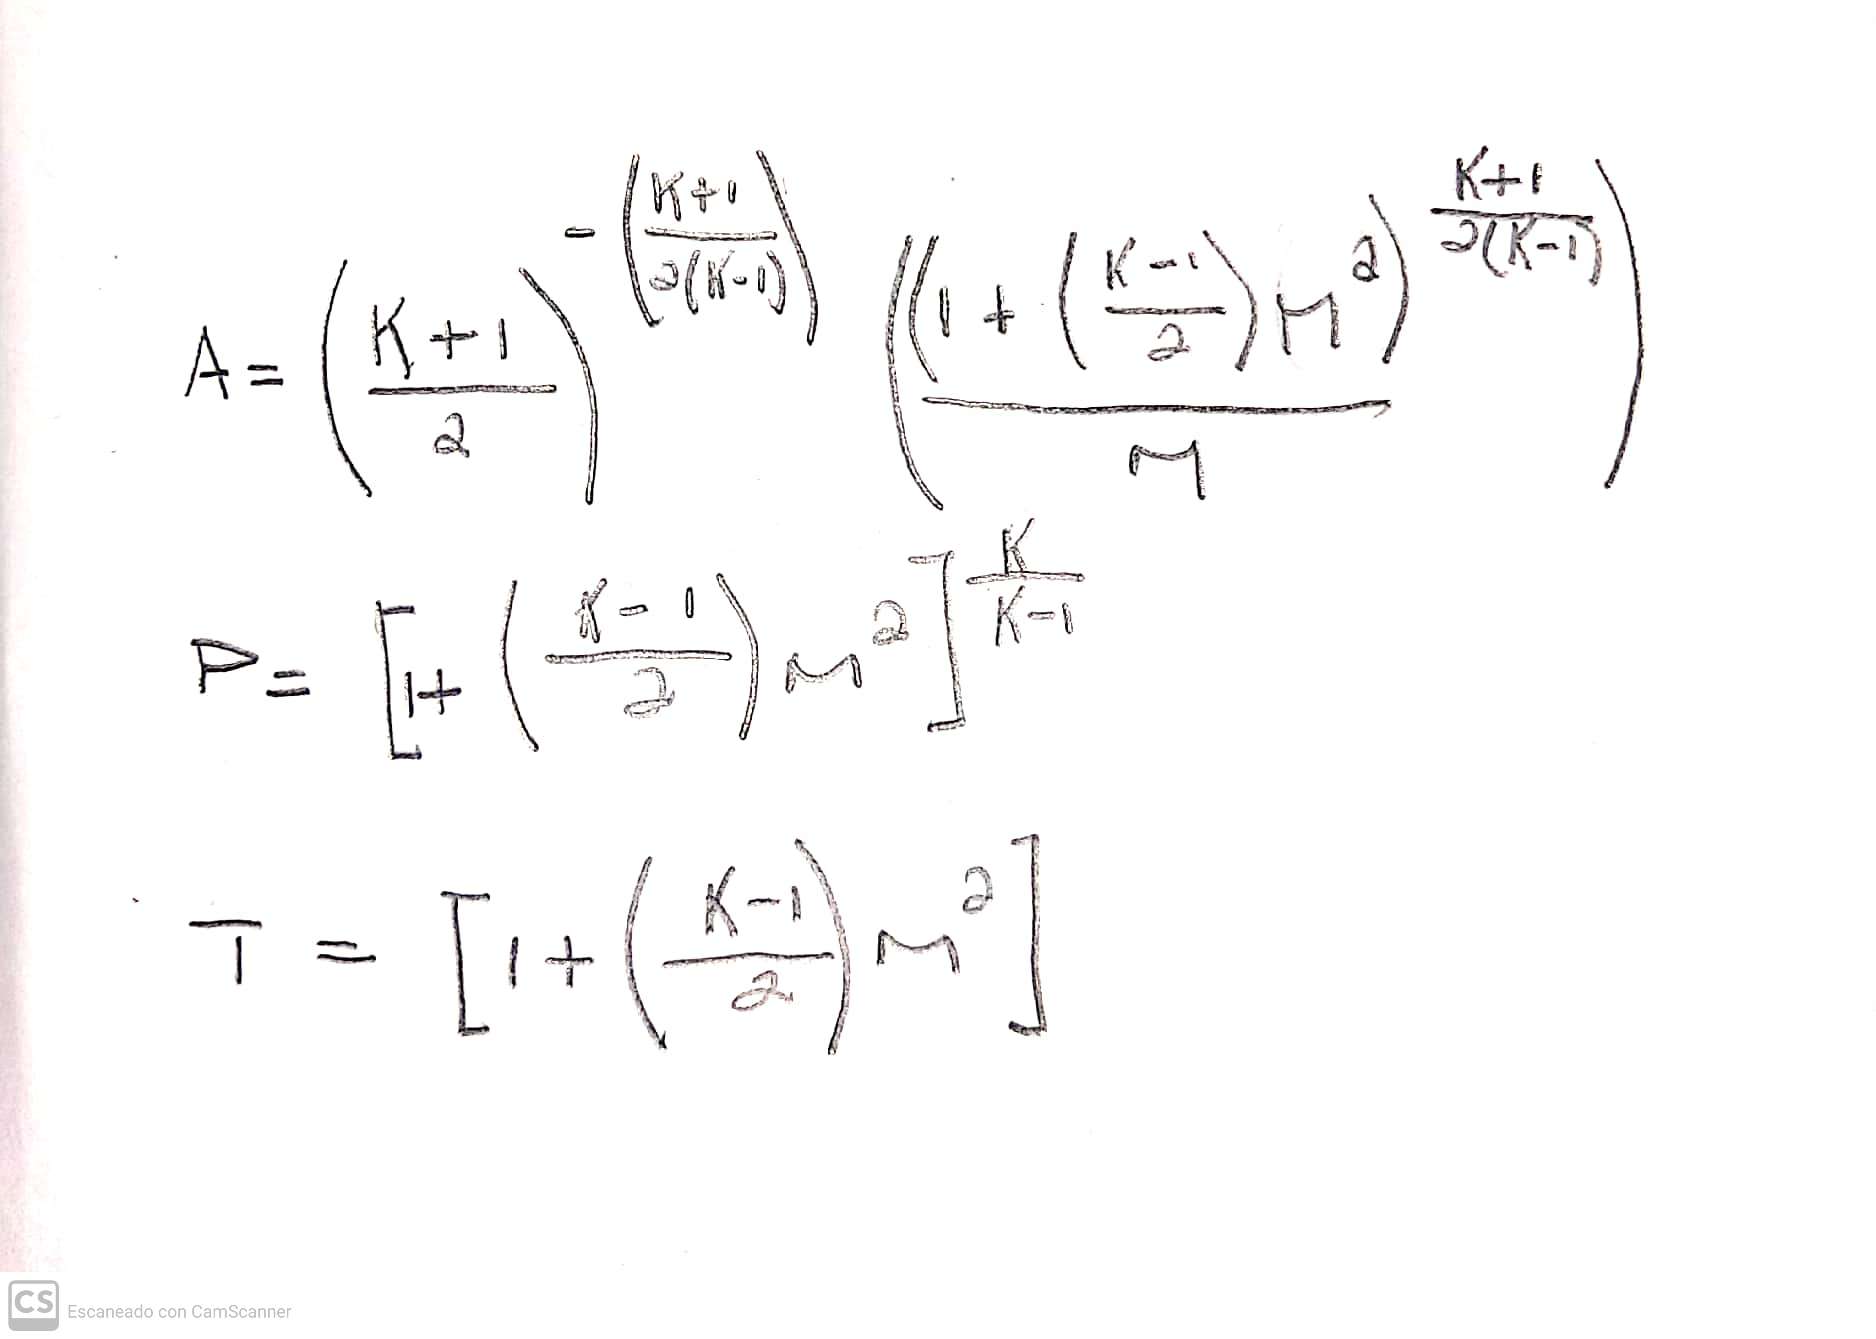 A = ((K+1)/2)^-((K+1)/(2(K-1))) (((1 + ((K-1)/2) M^2)^((K+1)/(2(K-1))))/M)
P = [1 + ((K-1)/2) M^2]^(K/(K-1))
T = [1 + ((K-1)/2) M^2]
CS Escaneado con CamScanner